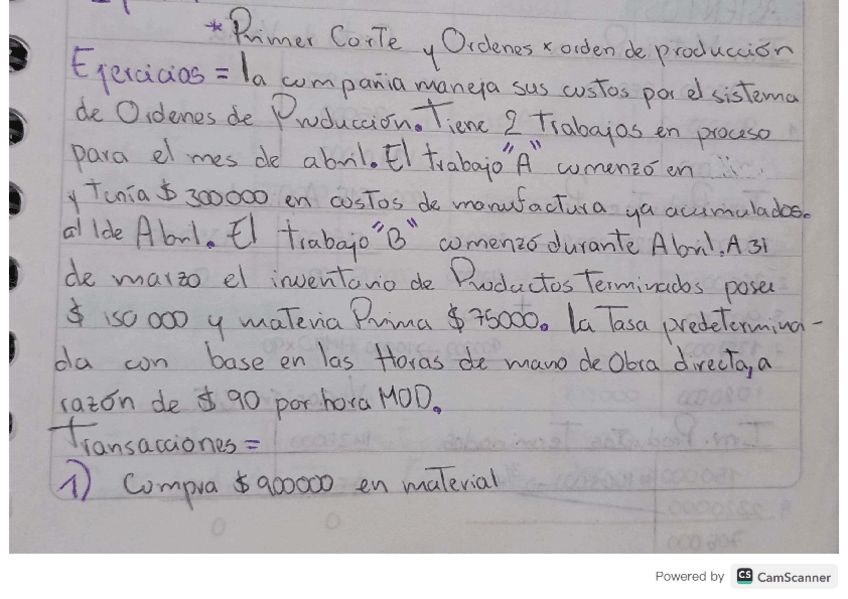 * Primer Corte y Ordenes x orden de producción
Ejercicios = la compañia maneja sus costos por el sistema
de Ordenes de Producción. Tiene 2 Trabajos en proceso
para el mes de abril. El trabajo "A" comenzó en
y tenía $ 300000 en costos de manufactura ya acumulados.
al 1 de Abril. El trabajo "B" comenzó durante Abril. A 31
de marzo el inventario de Productos Terminados posee
$ 150 000 y materia Prima $ 75000. la Tasa predetermina-
da con base en las Horas de mano de Obra directa, a
razón de $ 90 por hora MOD.
Transacciones =
1) Compra $ 900000 en material
Powered by CS CamScanner